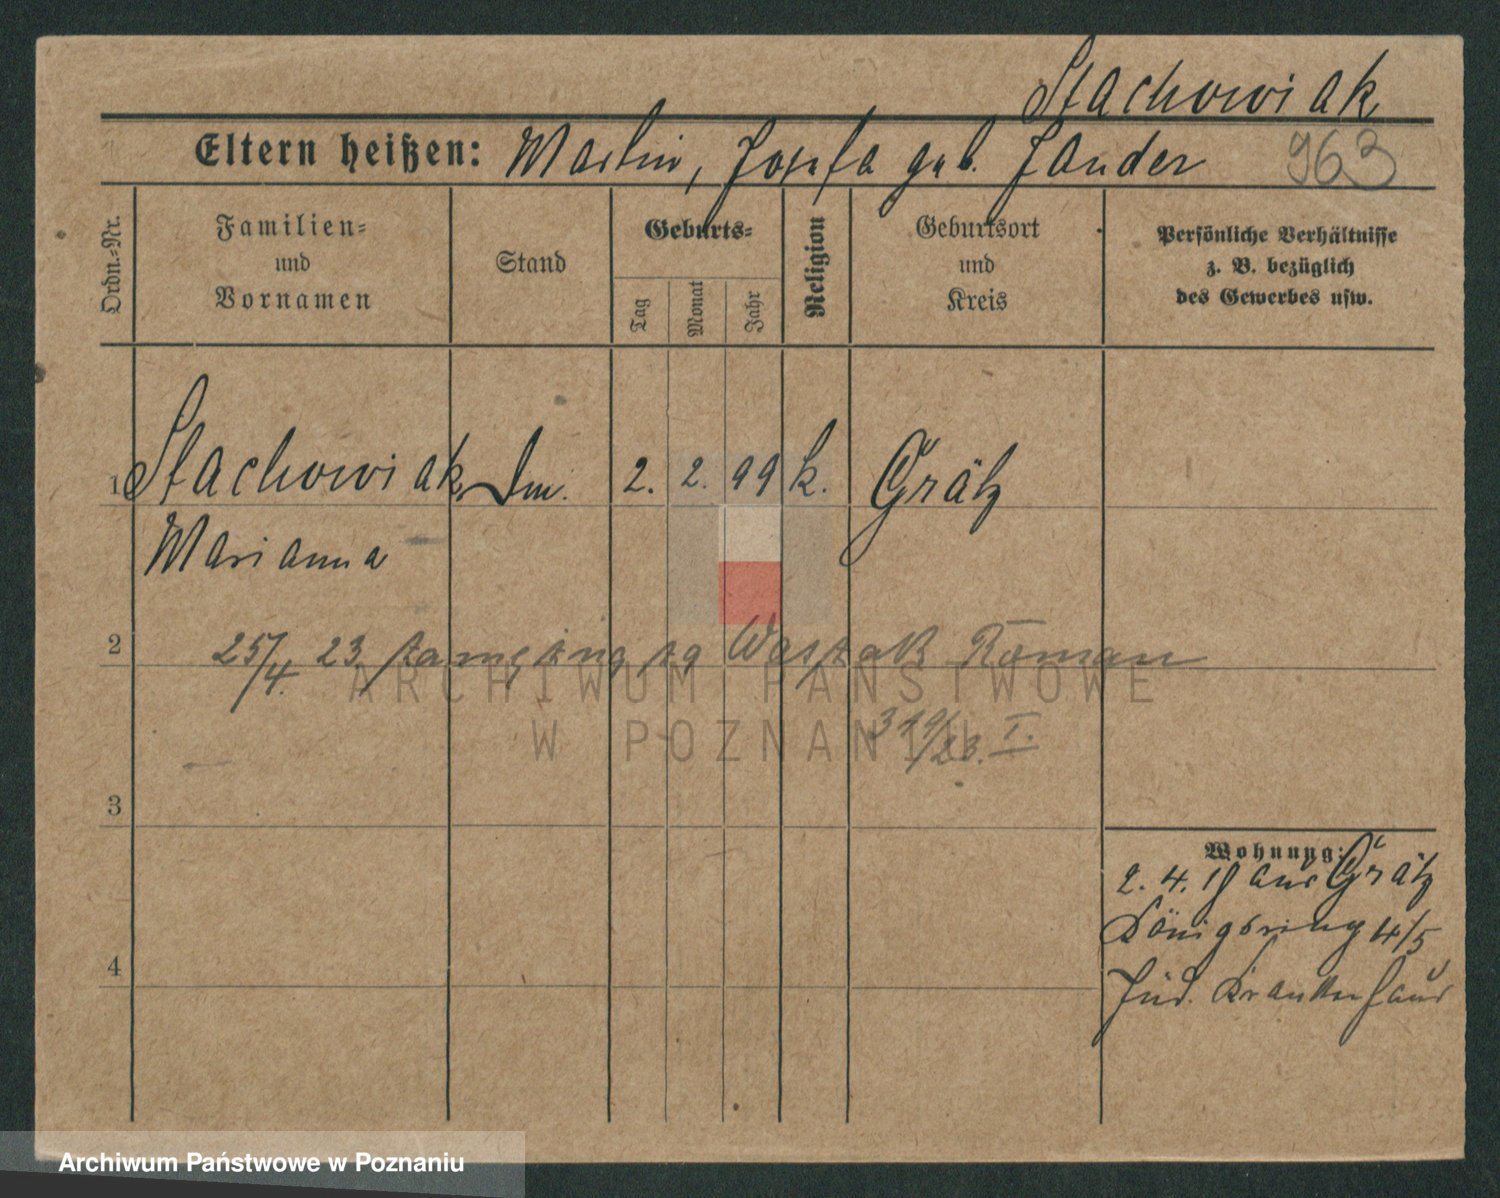 Stachowiak
Eltern heißen: Martin, Josefa geb. Jander 963
Ordn.=Nr.
Familien=
und
Vornamen
Stand
Geburts=
Tag
Monat
Jahr
Religion
Geburtsort
und
Kreis
Persönliche Verhältnisse
z. B. bezüglich
des Gewerbes usw.
1 Stachowiak 2. 2. 99 k. Grätz
Marianna
2 25/4. 23 Roman
/23. I.
ARCHIWUM PAŃSTWOWE
W POZNANIU
3
Wohnung:
2. 4. 19 aus Grätz
Königsring 4/5
4 Jüd. Krankenhaus
Archiwum Państwowe w Poznaniu